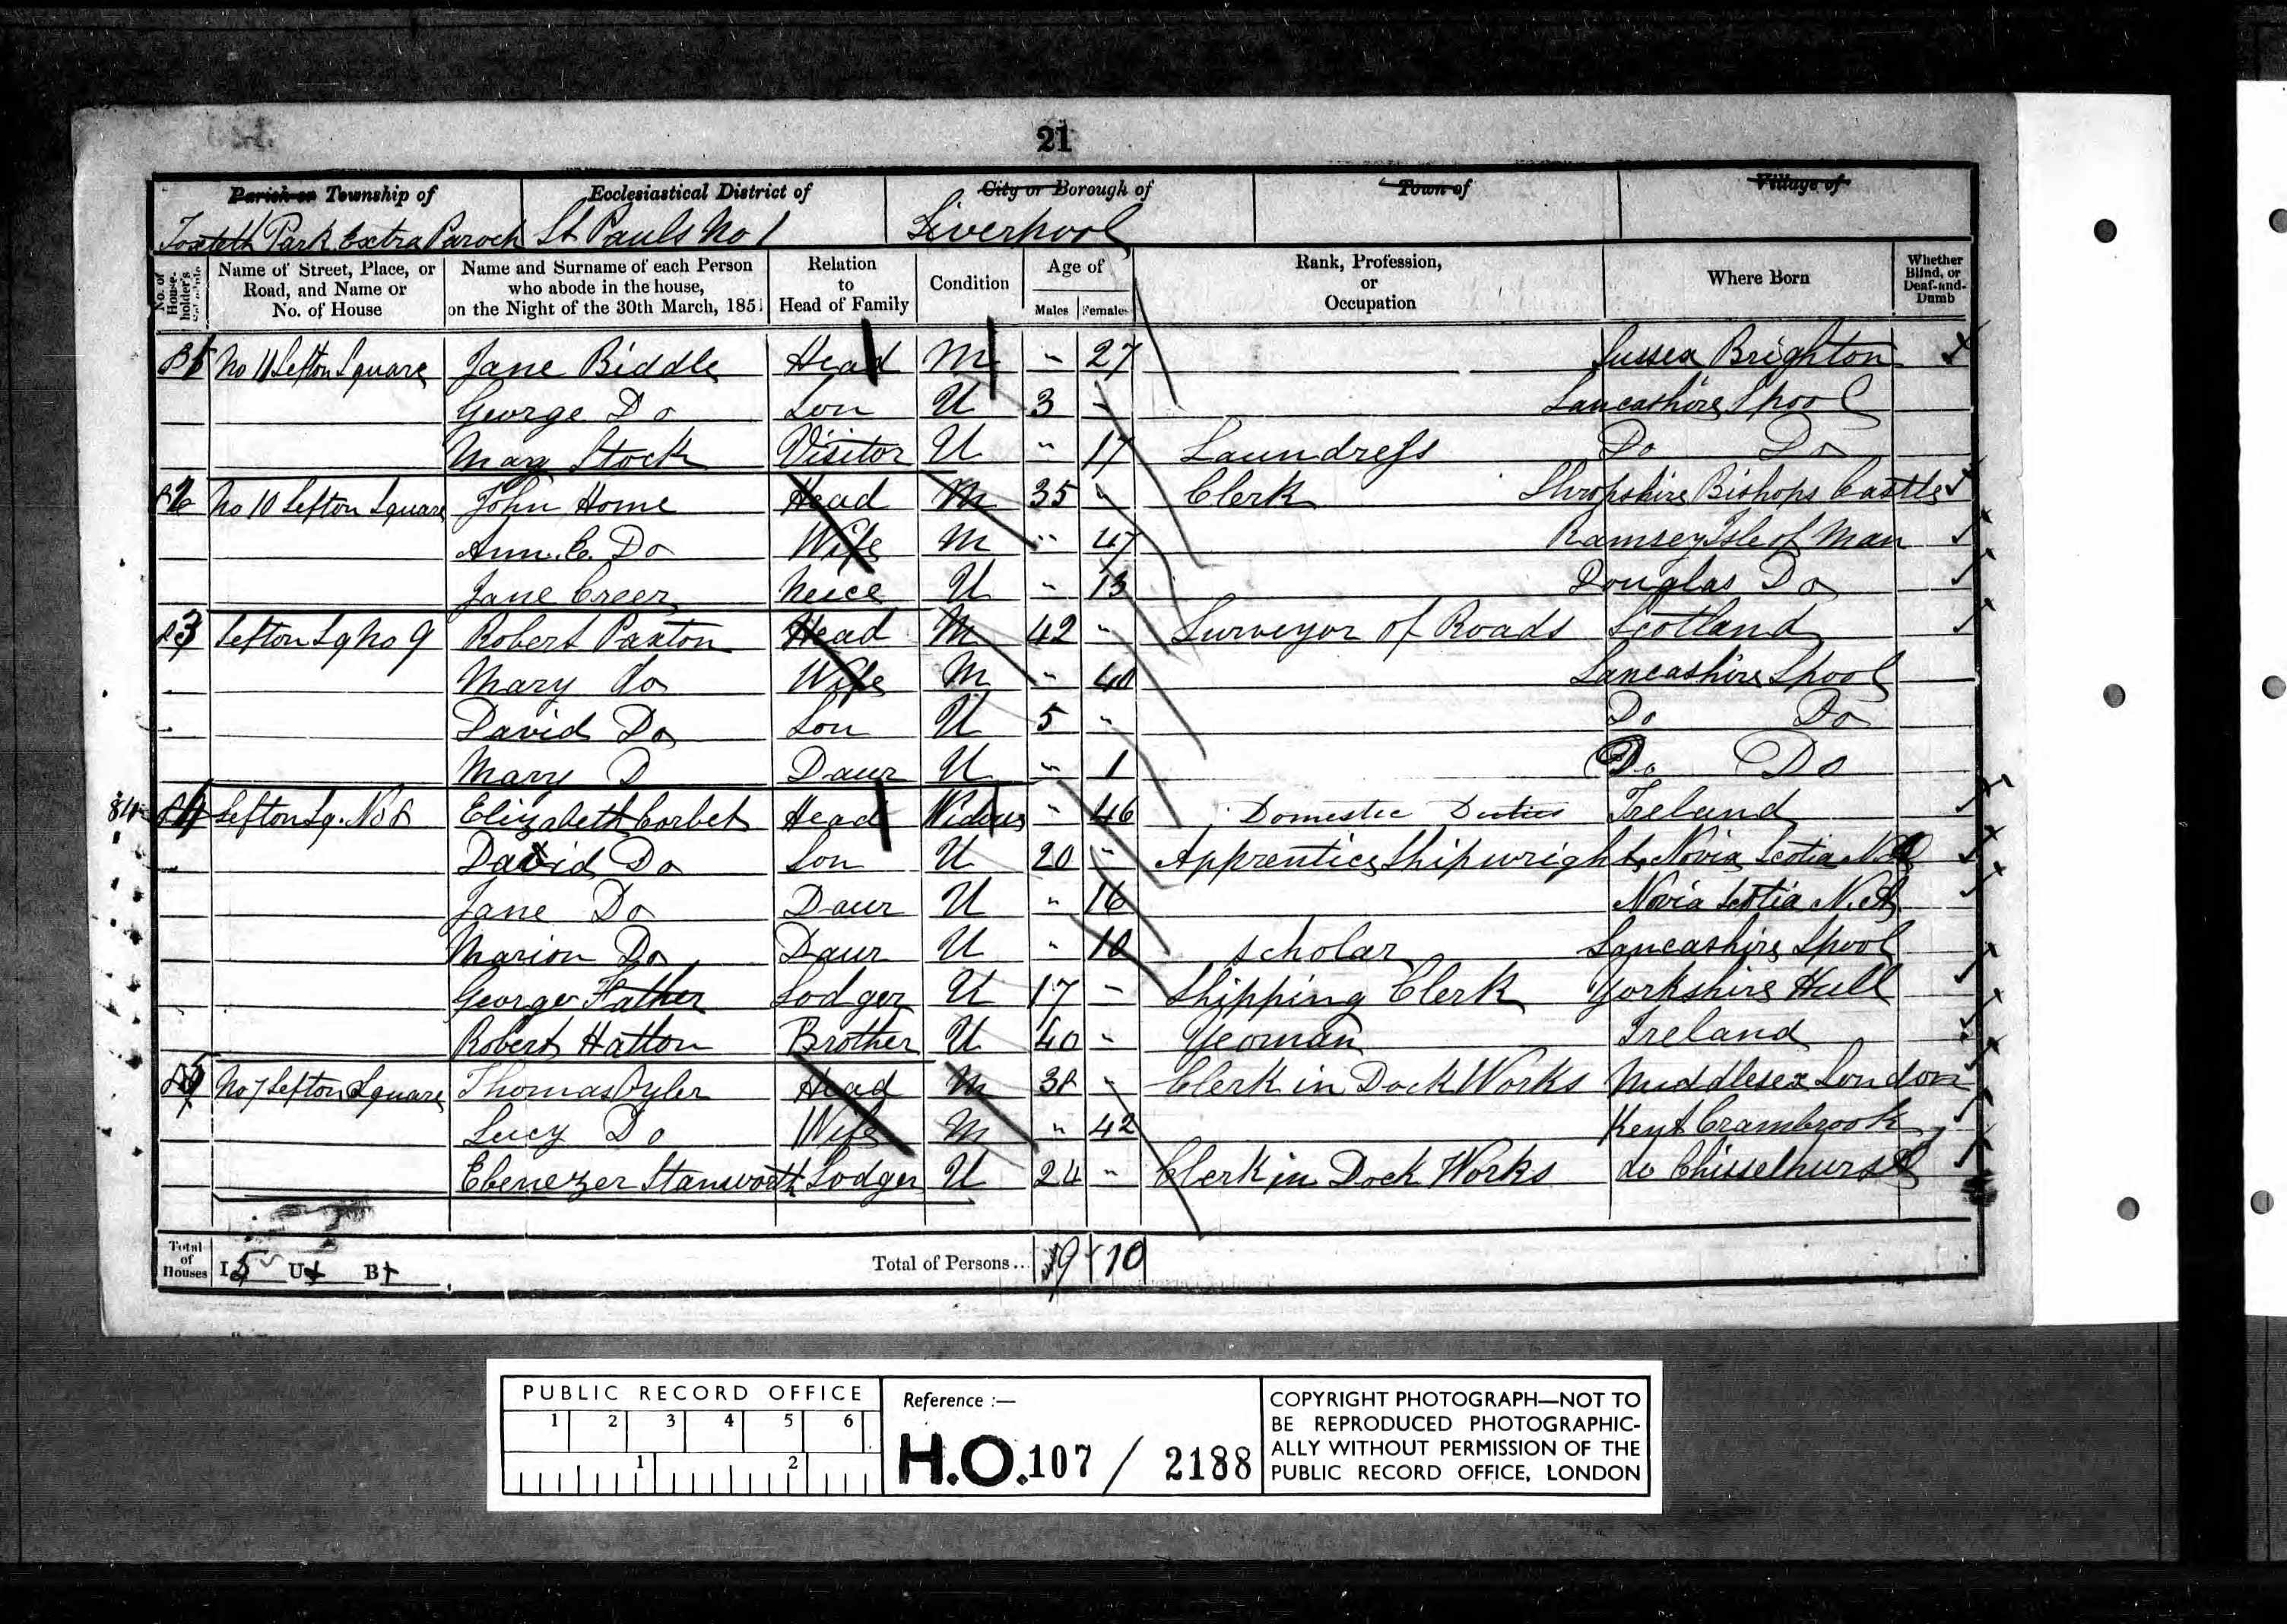 21
Parish or Township of Ecclesiastical District of City or Borough of Town of Village of
Toxteth Park Extra Paroch St Pauls No 1 Liverpool
No. of House-holder's Name of Street, Place, or Road, and Name or No. of House Name and Surname of each Person who abode in the house, on the Night of the 30th March, 1851 Relation to Head of Family Condition Age of Males Females Rank, Profession, or Occupation Where Born Whether Blind, or Deaf-and-Dumb
81 No 11 Sefton Square Jane Biddle Head M " 27 Sussex Brighton
George Do Son U 3 - Lancashire Lpool
Mary Stock Visitor U " 17 Laundress Do Do
82 No 10 Sefton Square John Home Head M 35 " Clerk Shropshire Bishops Castle
Ann. C. Do Wife M " 47 Ramsey Isle of Man
Jane Creer Neice U " 13 Douglas Do
83 Sefton Sq No 9 Robert Paxton Head M 42 " Surveyor of Roads Scotland
Mary do Wife M " 40 Lancashire Lpool
David Do Son U 5 " Do Do
Mary D Daur U " 1 Do Do
84 84 Sefton Sq. No 8 Elizabeth Corbet Head Widow " 46 Domestic Duties Ireland
David Do Son U 20 " Apprentice Shipwright Novia Scotia N.A
Jane Do Daur U " 16 Novia Scotia N.A
Marion Do Daur U " 10 Scholar Lancashire Lpool
George Flather Lodger U 17 - Shipping Clerk Yorkshire Hull
Robert Hatton Brother U 40 " Yeoman Ireland
85 No 7 Sefton Square Thomas Oyler Head M 38 " Clerk in Dock Works Middlesex London
Lucy Do Wife M " 42 Kent Crambrook
Ebenezer Stanworth Lodger U 24 " Clerk in Dock Works do Chisselhurst
Total of Houses I 5 U B Total of Persons... 9 10
PUBLIC RECORD OFFICE
1 2 3 4 5 6
1 2
Reference :—
H.O. 107 / 2188
COPYRIGHT PHOTOGRAPH—NOT TO
BE REPRODUCED PHOTOGRAPHIC-
ALLY WITHOUT PERMISSION OF THE
PUBLIC RECORD OFFICE, LONDON